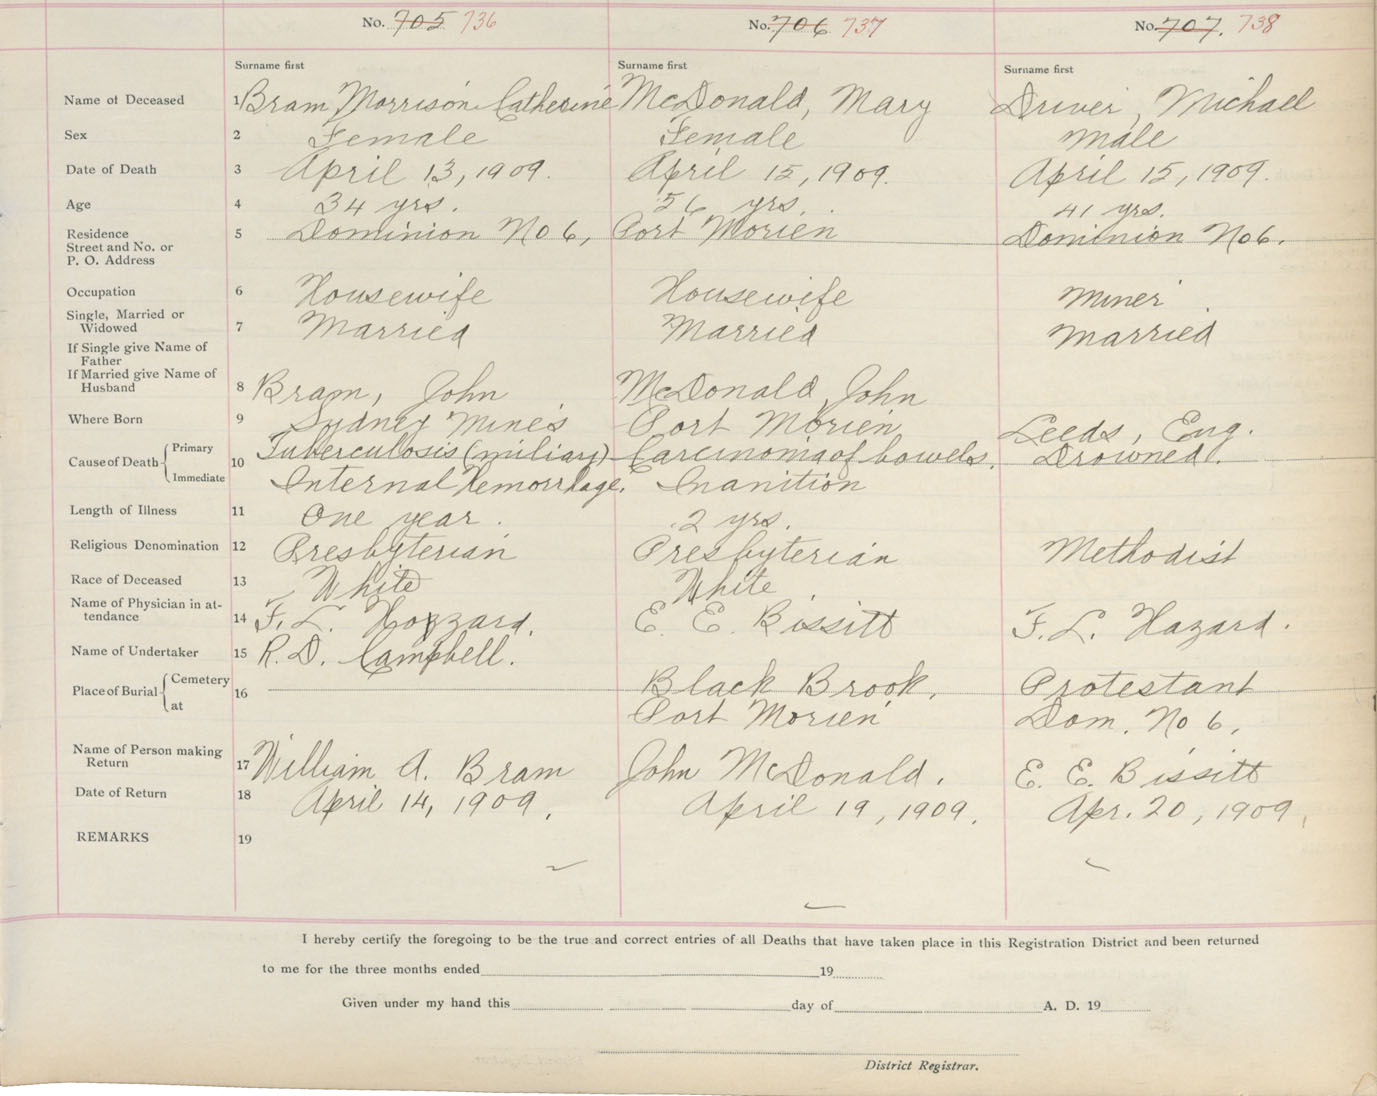 No. 705 736 No. 706 737 No. 707. 738
Surname first Surname first Surname first
Name of Deceased 1 Bram Morrison Catherine McDonald, Mary Driver, Michael
Sex 2 Female Female Male
Date of Death 3 April 13, 1909. April 15, 1909. April 15, 1909.
Age 4 34 yrs. 56 yrs. 41 yrs.
Residence 5 Dominion No 6, Port Morien Dominion No 6.
Street and No. or
P. O. Address
Occupation 6 Housewife Housewife Miner
Single, Married or
Widowed 7 Married Married Married
If Single give Name of
Father
If Married give Name of
Husband 8 Bram, John McDonald, John
Where Born 9 Sydney Mines Port Morien Leeds, Eng.
Cause of Death Primary 10 Tuberculosis (miliary) Carcinoma of bowels. Drowned.
Immediate Internal Hemorrhage. Inanition
Length of Illness 11 One year. 2 yrs.
Religious Denomination 12 Presbyterian Presbyterian Methodist
Race of Deceased 13 White White
Name of Physician in at-
tendance 14 F. L. Hozzard. E. E. Bissitt F. L. Hazard.
Name of Undertaker 15 R. D. Campbell.
Place of Burial Cemetery 16 Black Brook, Protestant
at Port Morien Dom. No 6,
Name of Person making
Return 17 William A. Bram John McDonald. E. E. Bissitt
Date of Return 18 April 14, 1909. April 19, 1909. Apr. 20, 1909.
REMARKS 19
I hereby certify the foregoing to be the true and correct entries of all Deaths that have taken place in this Registration District and been returned
to me for the three months ended 19
Given under my hand this day of A. D. 19
District Registrar.